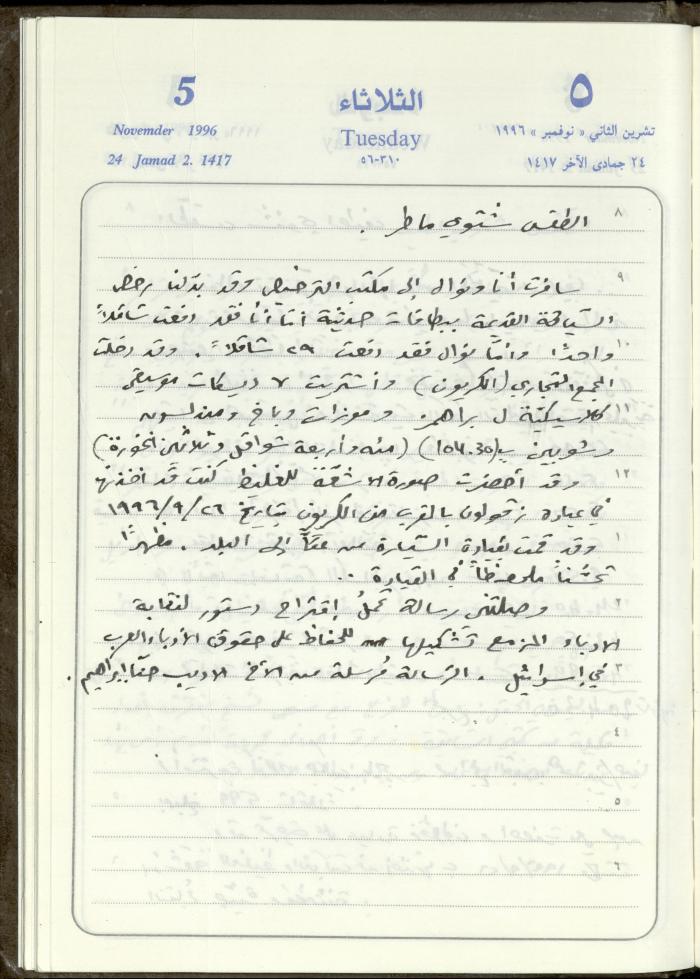 5 الثلاثاء ٥
Novemder 1996 Tuesday تشرين الثاني « نوفمبر » ١٩٩٦
24 Jamad 2. 1417 ٥٦-٣١٠ ٢٤ جمادى الآخر ١٤١٧
٨ الطقس شتوي ماطر .
٩
سافرت أنا ونوال إلى مكتب الترخيص وقد بدّلنا رخص
السياقة القديمة ببطاقات حديثة أمّا أنا فقد دفعت شاقلاً
١٠ واحدًا وأمّا نوال فقد دفعت ٢٩ شاقلاً . وقد دخلت
المجمع التجاري (الكريون) وأشتريت ٧ ديسكات موسيقى
١١ كلاسيكيّة ل براهمز وموزارت وباخ ومندلسون
وشوبين بِ(154.30) (مئه وأربعة شواقل وثلاثين اغورة)
١٢ وقد أحضرت صورة الاشعّة للغليظ كنت قد اخذتها
في عيادة زڤولون بالقرب من الكريون بتاريخ ٢٦/٩/١٩٩٦
١ وقد قمت بقيادة السيّارة من عكّا إلى البلد . مظهرًا
تحسّناً ملحوظاً في القيادة ..
٢ وصلتني رسالة تحملُ إقتراح دستور لنقابة
الادباء المزمع تشكيلها للحفاظ على حقوق الأدباء العرب
٣ في إسرائيل . الرّسالة مُرسلة من الأخ الاديب حنّا ابراهيم .
٤
٥
٦